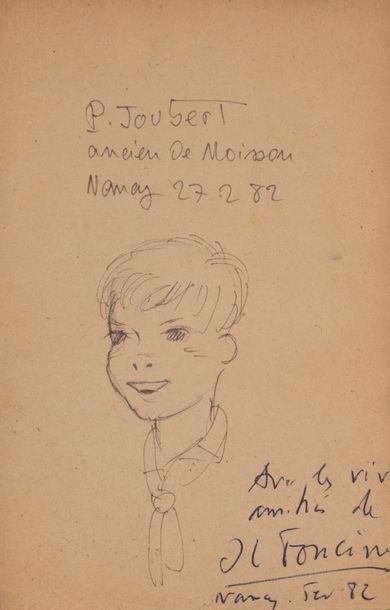 P. Joubert
ancien de Moisson
Nancy 27.2 82
Avec les viv
amitiés de
Foncine
Nancy. Fev 82